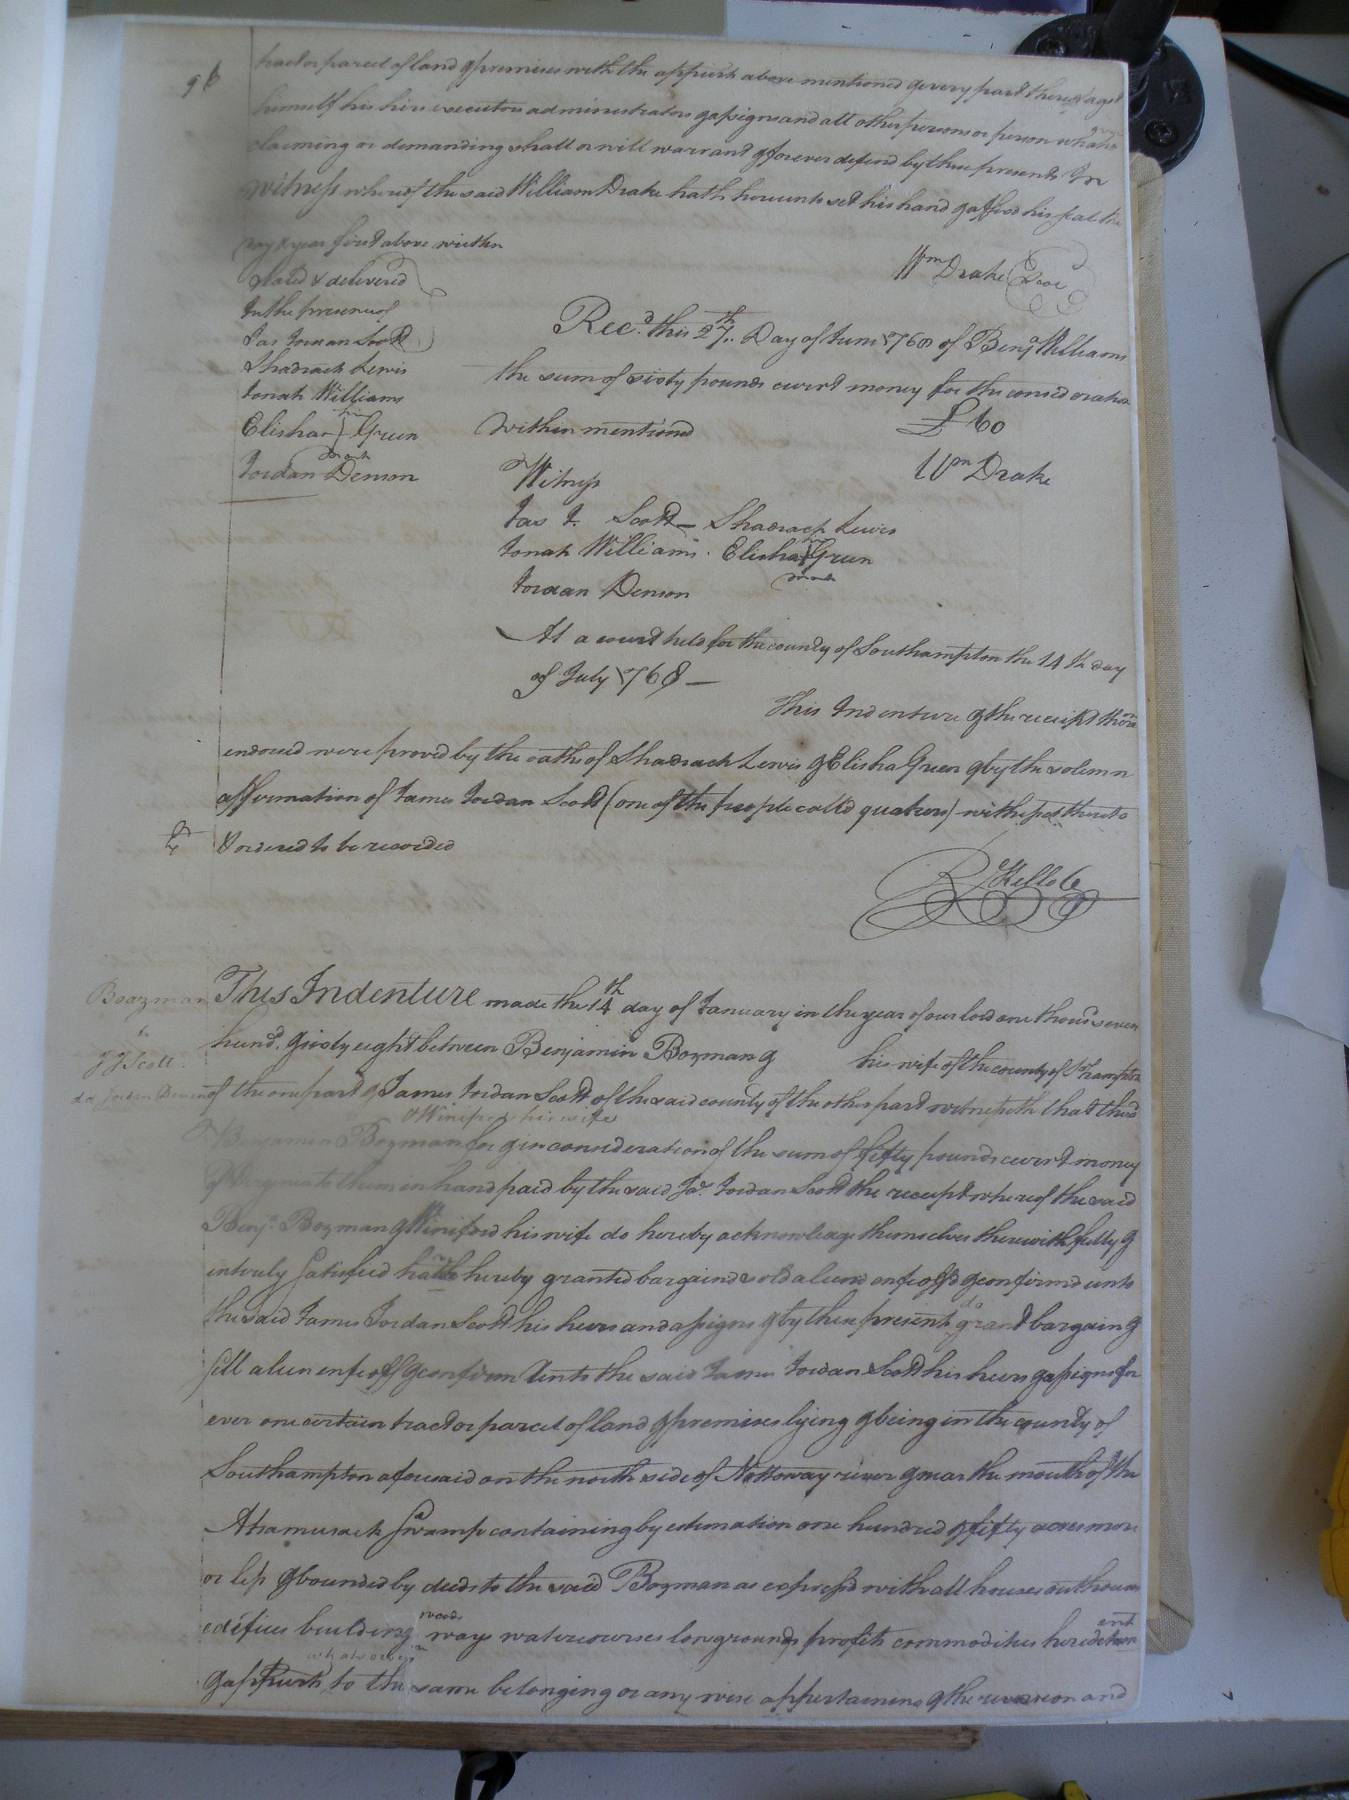 96
tract or parcel of land & premises with the appurts above mentioned & every part thereof agst
himself his heirs executors administrators & assigns and all other persons or person
claiming or demanding shall & will warrant & forever defend by these presents In
witness whereof the said William Drake hath hereunto set his hand & affixed his seal the
day & year first above written
Wm Drake Seal
Seald & delivered
In the presence of
Jas Jordan Scott
Shadrach Lewis
Jonah Williams
Elisha his mark Green
Jordan Denson
Recd. this 27th. Day of June 1768 of Benja Williams
the sum of sixty pounds curr't money for the consideration
within mentioned £60
Witness Wm Drake
Jas J. Scott – Shadrach Lewis
Jonah Williams. Elisha his mark Green
Jordan Denson
At a court held for the county of Southampton the 14th day
of July 1768 –
This Indenture & the receipt thereon
endorsed were proved by the oaths of Shadrach Lewis & Elisha Green & by the solemn
affirmation of James Jordan Scott (one of the people calld quakers) witnesses thereto
& ordered to be recorded
R Kello
Boazman
to
J J Scott
This Indenture made the 14th day of January in the year of our lord one thousd seven
hund. & sixty eight between Benjamin Bozman & his wife of the county of Sohampton
of the one part & James Jordan Scott of the said county of the other part witnesseth that the sd
& Winifred his wife
Benjamin Bozman for & in consideration of the sum of fifty pounds curr't money
of Virginia to them in hand paid by the said Jas. Jordan Scott the receipt whereof the said
Benja. Bozman & Winiford his wife do hereby acknowledge themselves therewith fully &
intirely satisfied have hereby granted bargaind sold aliend enfeoffd & confirmd unto
the said James Jordan Scott his heirs and assigns & by these presents do grant bargain &
sell alien enfeoff & confirm Unto the said James Jordan Scott his heirs & assigns for
ever one certain tract or parcel of land & premises lying & being in the county of
Southampton aforesaid on the north side of Nottoway river & near the mouth of the
Atsamusack Swamp containing by estimation one hundred & fifty acres more
or less & bounded by deeds to the said Bozman as expressd with all houses outhouses
edifices building woods ways watercourses lowgrounds profits commodities hereditament
& appurts whatsoever to the same belonging or any wise appertaining & the reversion and